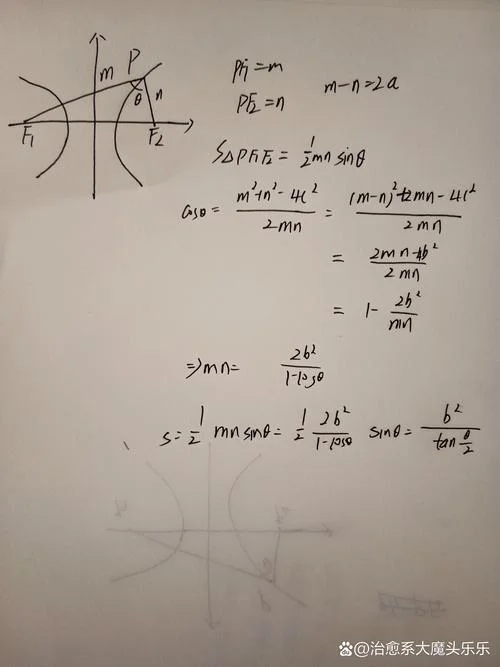 P
m
n
θ
F₁
F₂
PF₁=m
PF₂=n
m-n=2a
S△PF₁F₂=\frac{1}{2}mn sinθ
cosθ=\frac{m²+n²-4c²}{2mn}=\frac{(m-n)²+2mn-4c²}{2mn}
=\frac{2mn-4b²}{2mn}
=1-\frac{2b²}{mn}
⇒mn=\frac{2b²}{1-cosθ}
S=\frac{1}{2}mn sinθ=\frac{1}{2}\frac{2b²}{1-cosθ} sinθ=\frac{b²}{tan\frac{θ}{2}}
@治愈系大魔头乐乐